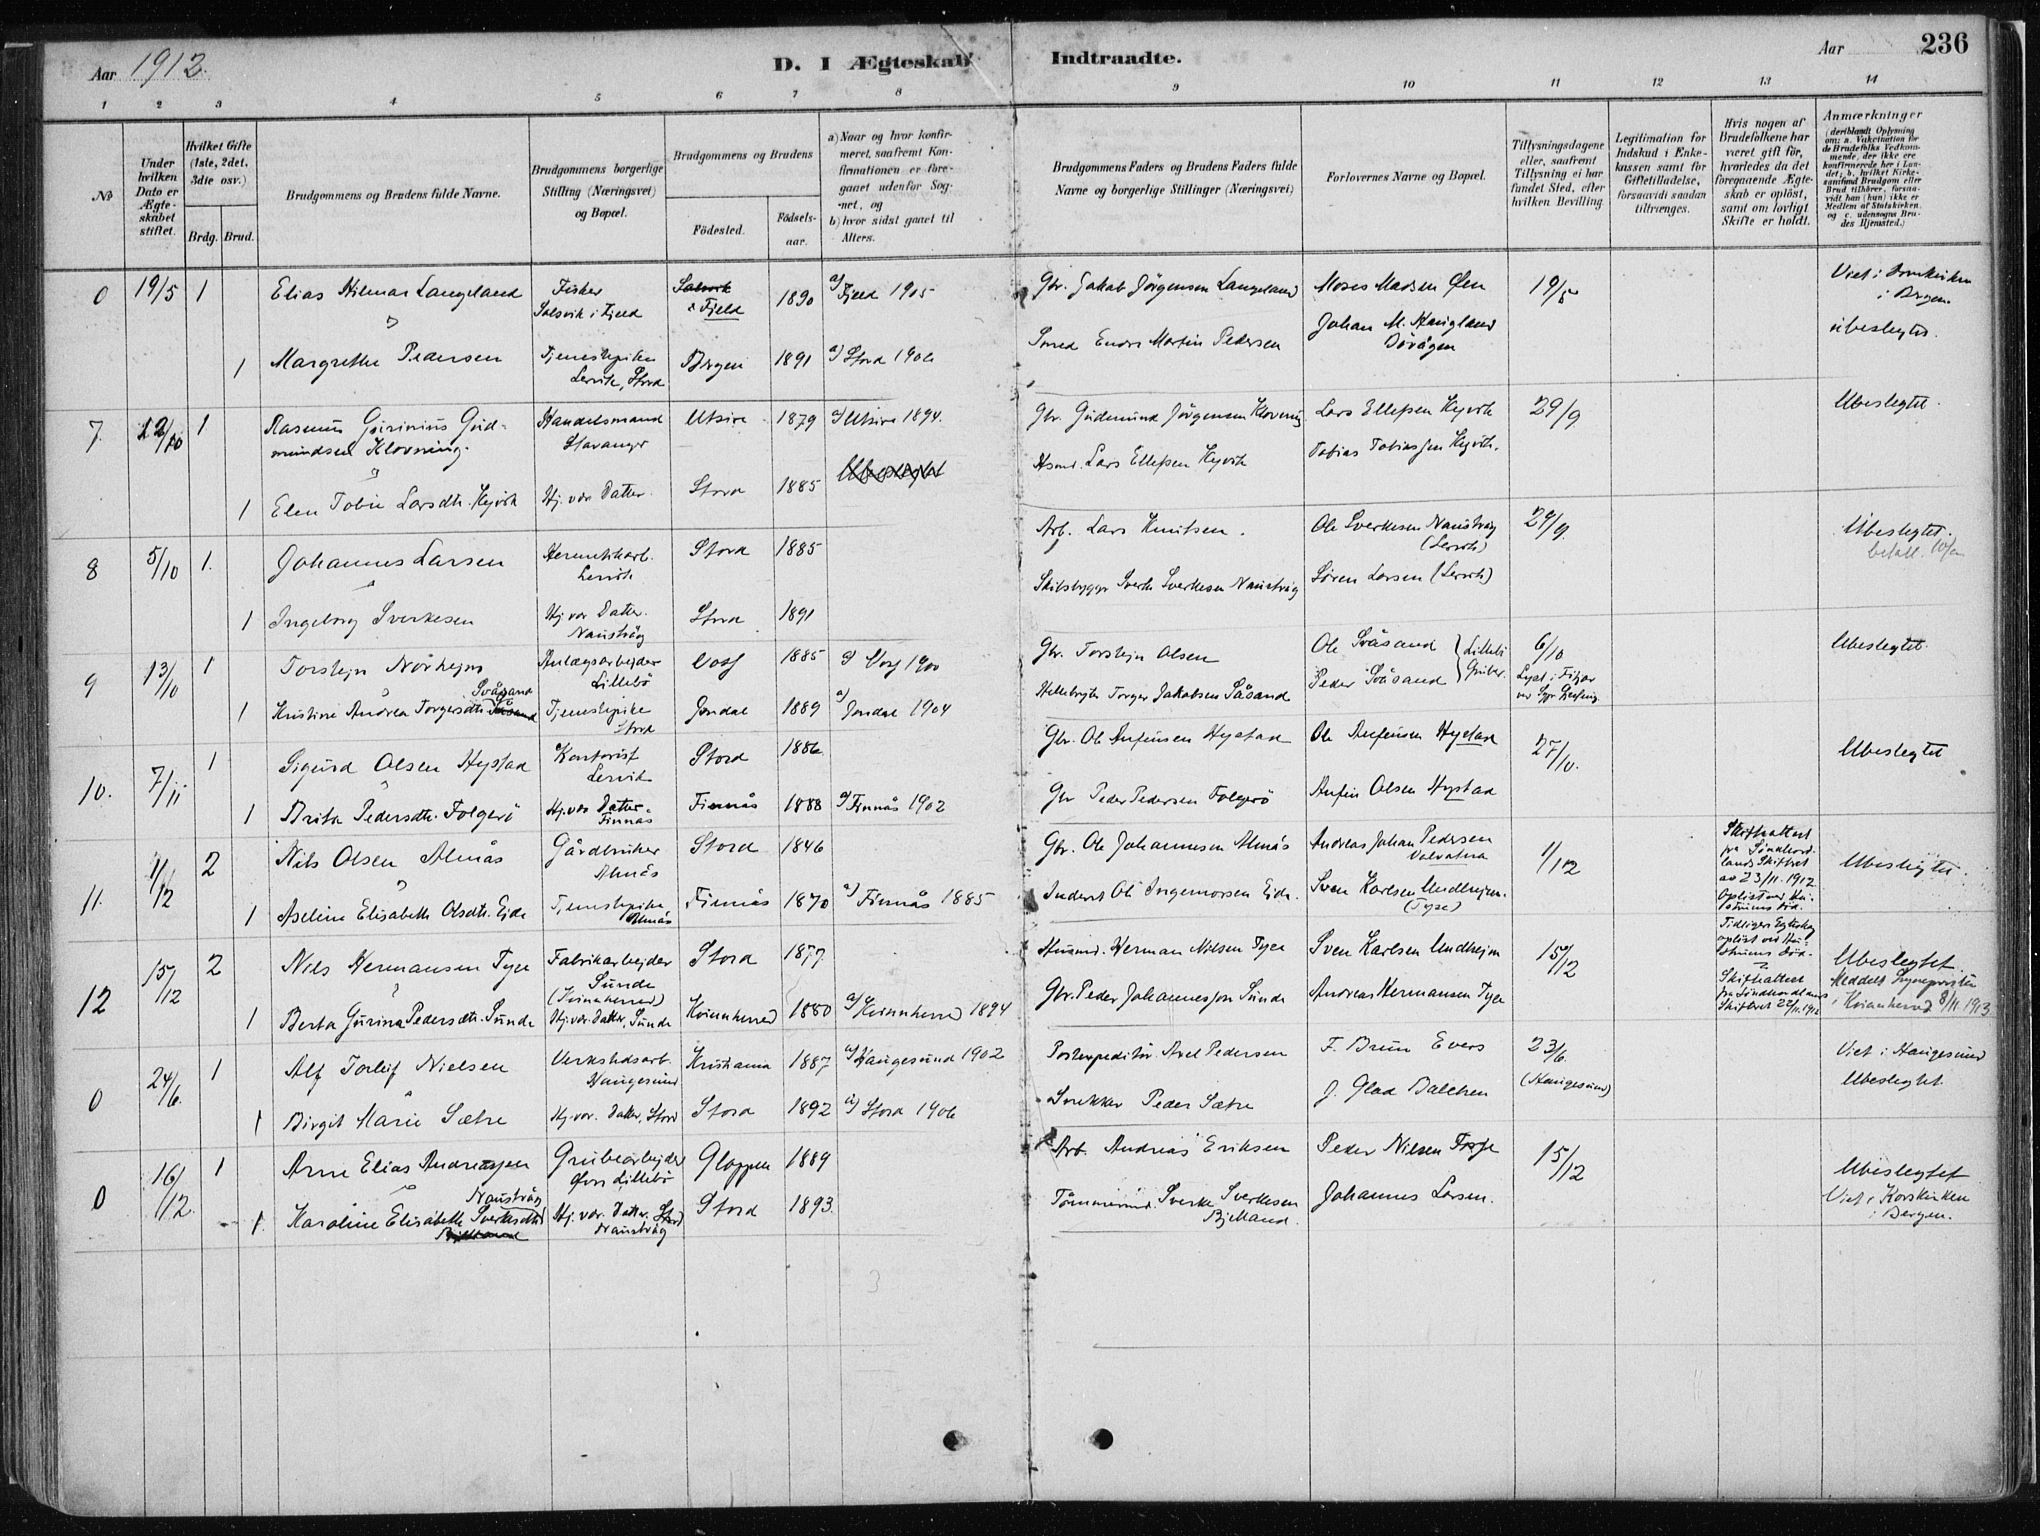 Aar 1912.
D. I Ægteskab Indtraadte.
Aar
236
1 2 3 4 5 6 7 8 9 10 11 12 13 14
No
Under hvilken Dato er Ægteskabet stiftet.
Hvilket Gifte (1ste, 2det, 3die osv.)
Brdg. Brud.
Brudgommens og Brudens fulde Navne.
Brudgommens borgerlige Stilling (Næringsvei) og Bopæl.
Brudgommens og Brudens
Födested.
Födselsaar.
a) Naar og hvor konfirmeret, saafremt Konfirmationen er foregaaet udenfor Sognet, og
b) hvor sidst gaaet til Alters.
Brudgommens Faders og Brudens Faders fulde Navne og borgerlige Stillinger (Næringsvei)
Forlovernes Navne og Bopæl.
Tillysningsdagene eller, saafremt Tillysning ei har fundet Sted, efter hvilken Bevilling.
Legitimation for Indskud i Enkekassen samt for Giftetilladelse, forsaavidt saadan tiltrænges.
Hvis nogen af Brudefolkene har været gift för, hvorledes da det foregaaende Ægteskab er oplöst, samt om lovligt Skifte er holdt.
Anmærkninger
(deriblandt Oplysning om: a. Vakcination for de Brudefolks Vedkommende, der ikke ere konfirmerede her i Landet; b. hvilket Kirkesamfund Brudgom eller Brud tilhörer, forsaavidt han (hun) ikke er Medlem af Statskirken, og c. udensogns Brudes Hjemsted.)
0 19/5 1 Elias Hilmar Langeland Fisker Solsvik i Fjeld Solsvik i Fjeld 1890 a) Fjeld 1905 Gbr. Jakob Jörgensen Langeland Moses Madsen Øen 19/5 Viet i Domkirken i Bergen
1 Margrethe Pedersen Tjenestepike Lervik, Stord Bergen 1891 a) Stord 1906 Smed Endre Martin Pedersen Johan M. Haugland Dövågen ubeslegtet.
7. 12/10 1 Rasmus Gudmundsen Klovning Handelsmand Stavanger Utsire 1879 a) Utsire 1894. Gbr. Gudmund Jörgensen Klovning Lars Ellefsen Hyvik 29/9 Ubeslegtet.
1 Elen Tobie Larsdtr. Hyvik Hj. vær. Datter. Stord 1885 Ubeslegtet Hsmd. Lars Ellefsen Hyvik Tobias Tobiassen Hyvik.
8 5/10 1. Johannes Larsen Hermetikarb. Lervik Stord 1885 Arb. Lars Knutsen. Ole Sverkesen Naustvåg (Lervik) 29/9 Ubeslegtet.
1 Ingeborg Sverkesen Hj. vær. Datter. Naustvåg Stord 1891 Skibsbygger Sverke Sverkesen Naustvåg Sören Larsen (Lervik)
9 13/10 1 Torstejn Nörhejm Anlægsarbejder Lillebö Voss 1885 a) Voss 1900 Gbr. Torstejn Olsen Ole Svåsand 6/10 Ubeslegtet
1 Kristine Andrea Torgersdtr. Svåsand Tjenestepike Stord Jondal 1889 a) Jondal 1904 Hellebryter Torger Jakobsen Såsand Peder Svåsand Lillebö Gruber. Lyst i Fitjar
10. 7/11 1 Sigurd Olsen Hystad Kontorist Lervik Stord 1886 Gbr. Ole Anfinsen Hystad Ole Anfinsen Hystad 27/10. Ubeslegtet
1 Brita Pedersdtr. Folgerö Hj. vær. Datter. Finnås Finnås 1888 a) Finnås 1902 Gbr Peder Pedersen Folgerö Anfin Olsen Hystad
11. 1/12 2 Nils Olsen Almås Gårdbruker Almås Stord 1846 Gbr. Ole Johannesen Almås Andreas Johan Pedersen Valvatna 1/12 Skifteattest fra Söndhordlands Skifteret av 23/11. 1912 Oplöst ved Hustruens död. Ubeslegtet.
1 Aseline Elisabeth Olsdtr. Eide Tjenestepike Almås Finnås 1870 a) Finnås 1885 Inderst Ole Ingemorsen Eide. Sven Karlsen Undhejm. (Tyse)
12 15/12 2 Nils Hermansen Tyse Fabrikarbejder Sunde (Kvinnherred) Stord 1877 Husmd. Herman Nilsen Tyse Sven Karlsen Undhejm 15/12 Tidligere Egteskap oplöst ved Hustruens död. Ubeslegtet
1 Berta Gurina Pedersdtr. Sunde Hj. vær. Datter, Sunde Kvinnherred 1880 a) Kvinnherred 1894 Gbr. Peder Johannessen Sunde Andreas Hermansen Tyse Skifteattest fra Söndhordlands Skifteret 22/11. 1912 Meddelt Sogneprsten i Kvinnherred 8/11. 1913
0 24/6. 1 Alf Torleif Nielsen Verkstedsarb. Haugesund Kristiania 1887 a) Haugesund 1902 Postexpeditör Axel Pedersen F. Bruun Evers 23/6 (Haugesund) Viet i Haugesund
1 Birgit Marie Sætre Hj. vær. Datter, Stord Stord 1892 a) Stord 1906 Snekker Peder Sætre J. Glad Balchen Ubeslegtet.
0 16/12 1 Arne Elias Andreassen Grubearbejder Övre Lillebö Gloppen 1889 Arb. Andreas Eriksen Peder Nilsen 15/12 Ubeslegtet
1. Karoline Elisabeth Sverkesdtr. Naustvåg Bjelland Hj. vær. Datter, Stord Naustvåg Stord 1893. Tömmermd. Sverke Sverkesen Bjelland. Johannes Larsen. Viet i Korskirken i Bergen.
3